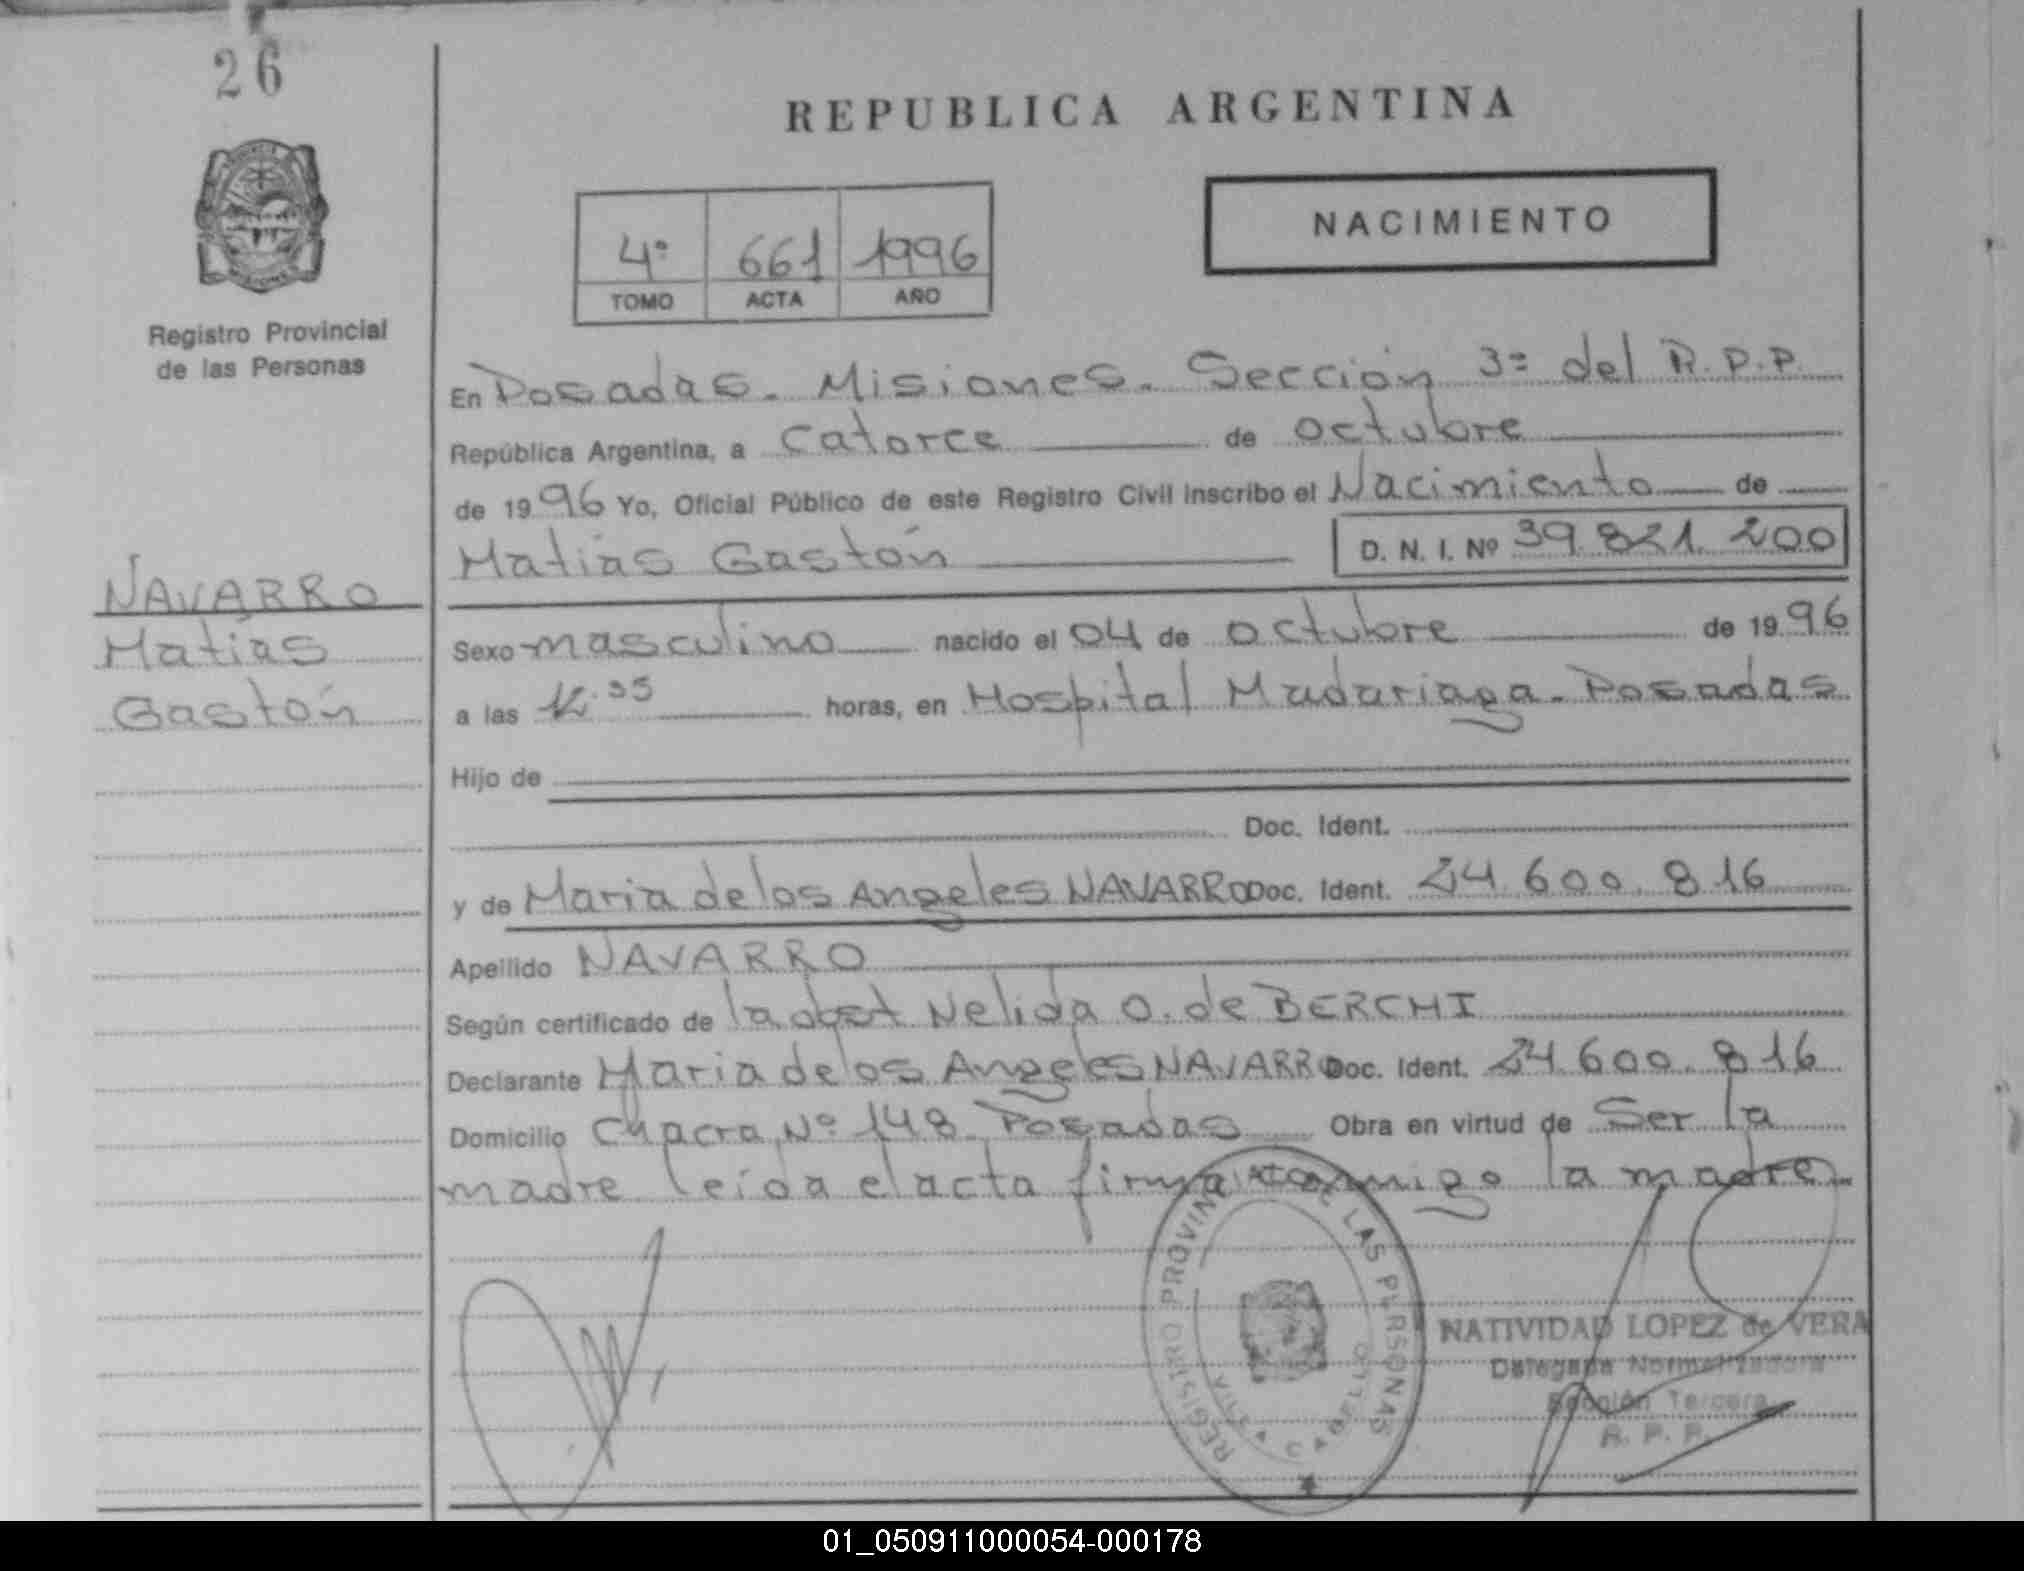 26
REPUBLICA ARGENTINA
NACIMIENTO
4º 661 1996
TOMO ACTA AÑO
Registro Provincial
de las Personas
En Posadas. Misiones. Sección 3ª del R.P.P.
República Argentina, a Catorce de octubre
de 1996 Yo, Oficial Público de este Registro Civil inscribo el Nacimiento de
Matías Gastón D. N. I. Nº 39.821.200
NAVARRO
Matías
Gastón
Sexo masculino nacido el 04 de octubre de 1996
a las 12.35 horas, en Hospital Madariaga. Posadas
Hijo de
Doc. Ident.
y de Maria de los Angeles NAVARRO Doc. Ident. 24.600.816
Apellido NAVARRO
Según certificado de la obst Nelida O. de BERCHI
Declarante Maria de los Angeles NAVARRO Doc. Ident. 24.600.816
Domicilio Chacra Nº 148 Posadas Obra en virtud de Ser la
madre leída el acta firma conmigo la madre
REGISTRO PROVINCIAL DE LAS PERSONAS
VILLA CABELLO
NATIVIDAD LOPEZ de VERA
Delegada Normalizadora
Sección Tercera
R. P. P.
01_050911000054-000178